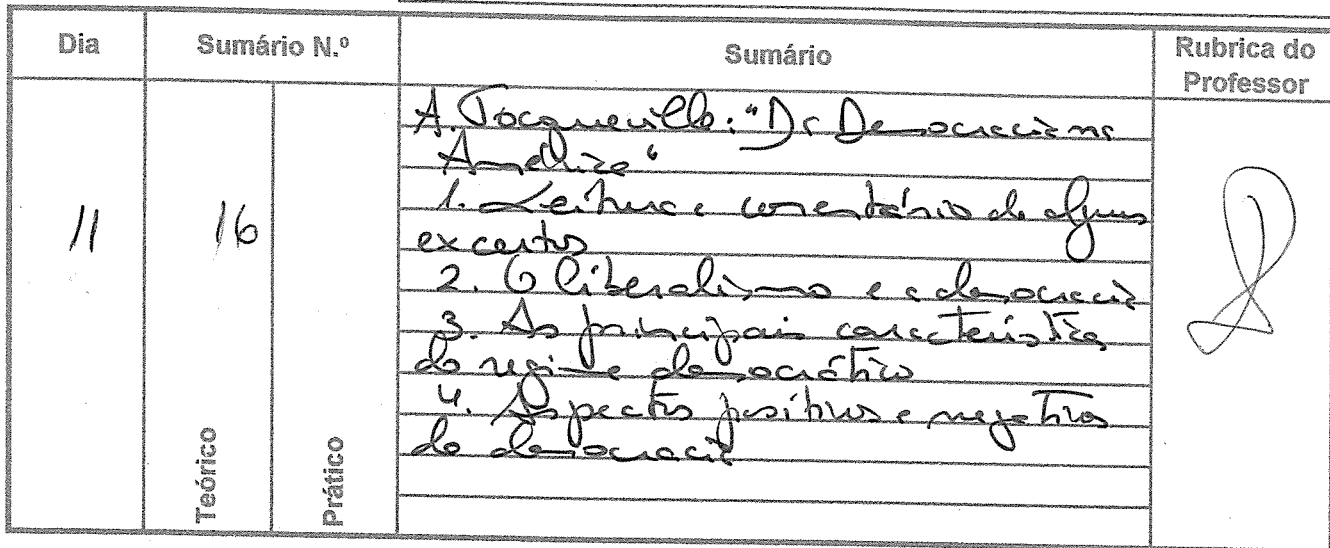 Dia
Sumário N.º
Sumário
Rubrica do
Professor
11
16
Teórico
Prático
A. Tocqueville: "Da Democracia na
América"
1. Leitura e comentário de alguns
excertos
2. O liberalismo e a democracia
3. As principais características
do regime democrático
4. Aspectos positivos e negativos
da democracia